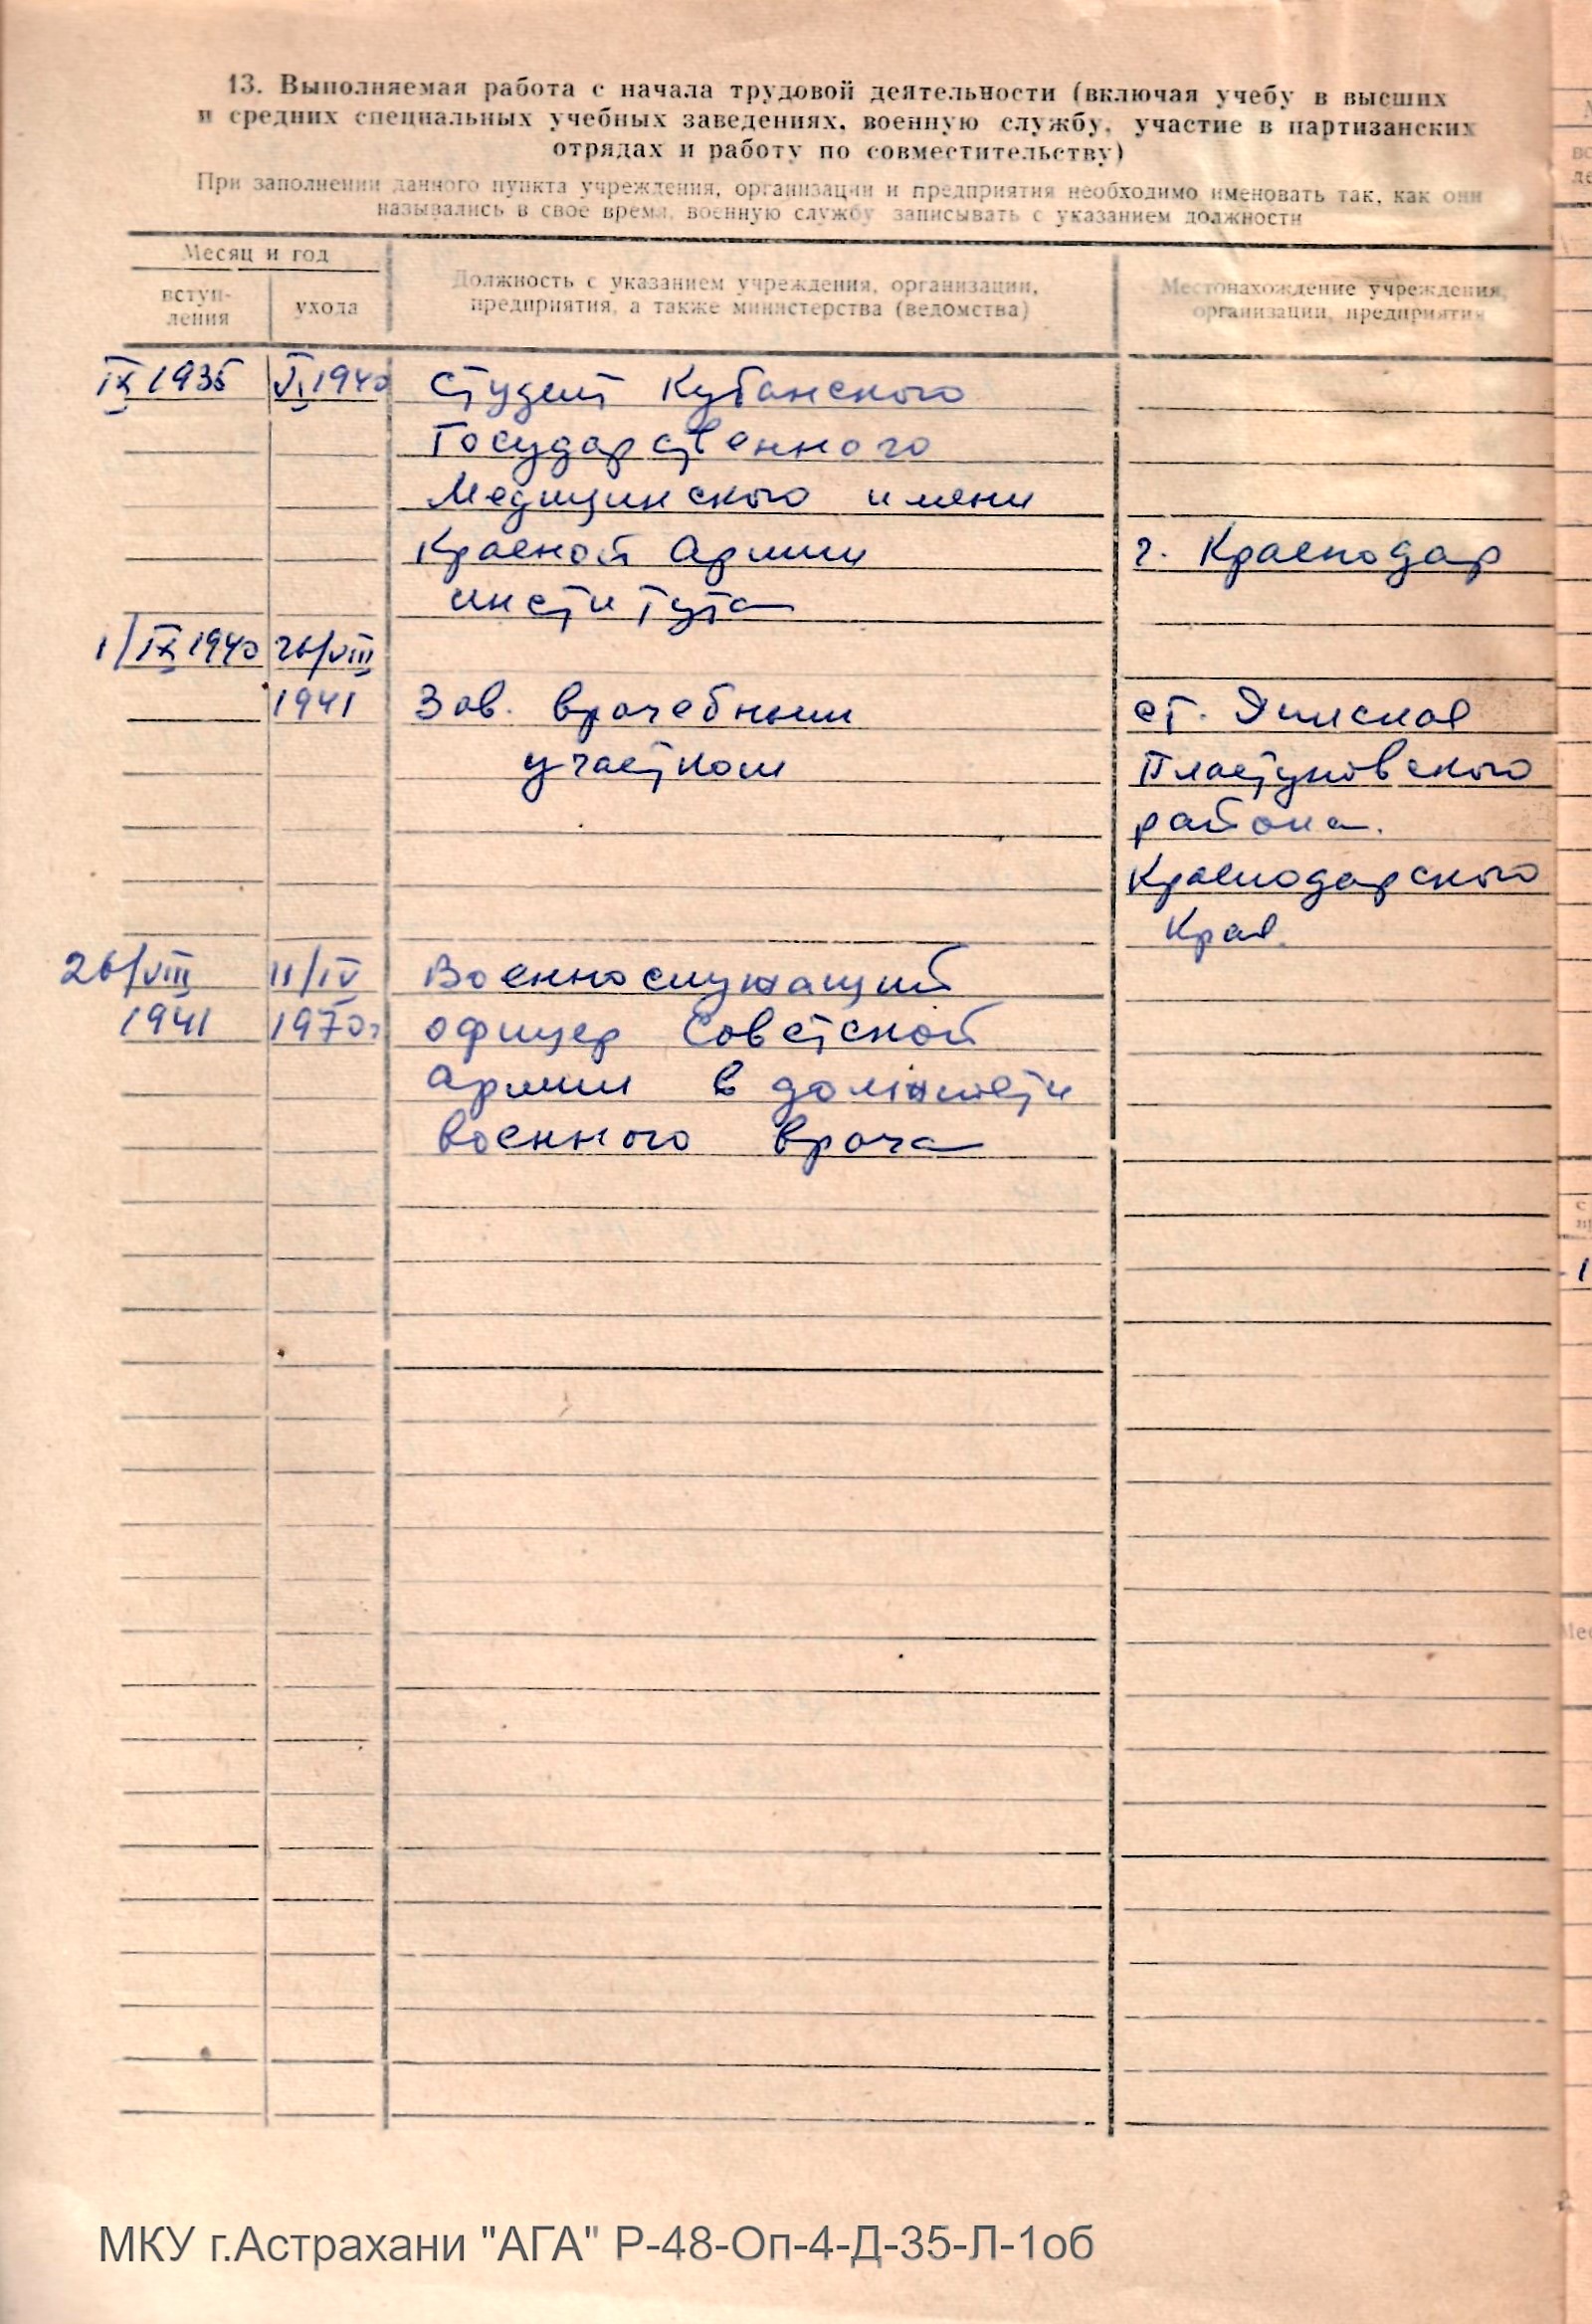 13. Выполняемая работа с начала трудовой деятельности (включая учебу в высших
и средних специальных учебных заведениях, военную службу, участие в партизанских
отрядах и работу по совместительству)
При заполнении данного пункта учреждения, организации и предприятия необходимо именовать так, как они
назывались в свое время, военную службу записывать с указанием должности
Месяц и год
вступ-
ления
ухода
Должность с указанием учреждения, организации,
предприятия, а также министерства (ведомства)
Местонахождение учреждения,
организации, предприятия
IX 1935 VI 1940 Студент Кубанского
Государственного
Медицинского имени
Красной Армии г. Краснодар
института
1/IX 1940 26/VIII
1941 Зав. врачебным ст.
участком Пластуновского
района.
Краснодарского
Края.
26/VIII 11/IV Военнослужащий
1941 1970г офицер Советской
Армии в должности
военного врача
МКУ г.Астрахани "АГА" Р-48-Оп-4-Д-35-Л-1об